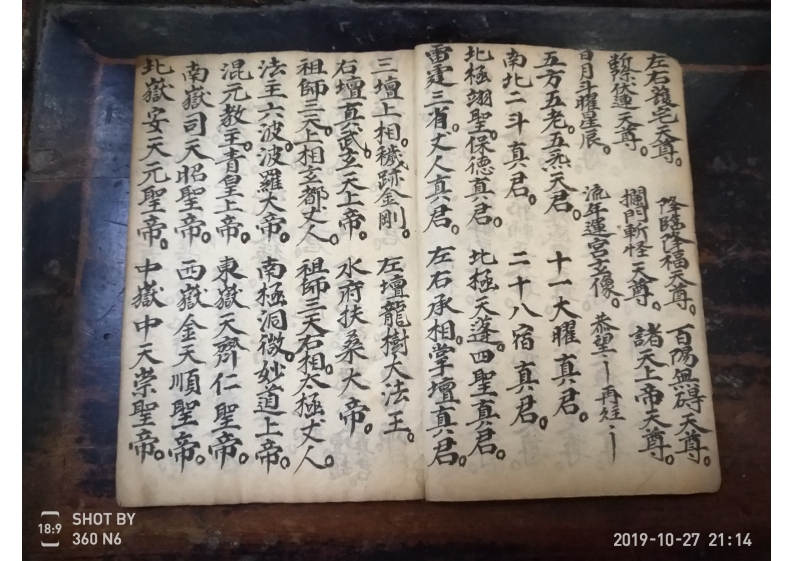 左右護宅天尊。降臨降福天尊。百陽無碍天尊。
伏連天尊。攔門斬怪天尊。諸天上帝天尊。
日月斗曜星辰。流年運宮玄像。恭望〡再炷〡
五方五老五炁天君。十一大曜真君。
南北二斗真君。二十八宿真君。
北極翊聖保德真君。北極天蓬四聖真君。
雷霆三省丈人真君。左右承相掌壇真君。
三壇上相穢跡金剛。左壇龍樹大法王。
右壇真武玄天上帝。水府扶桑大帝。
祖師三天上相玄都丈人。祖師三天右相太極丈人。
法主六波波羅大帝。南極洞微妙道上帝。
混元教主青皇上帝。東嶽天齊仁聖帝。
南嶽司天昭聖帝。西嶽金天順聖帝。
北嶽安天元聖帝。中嶽中天崇聖帝。
18:9 SHOT BY
360 N6
2019-10-27 21:14